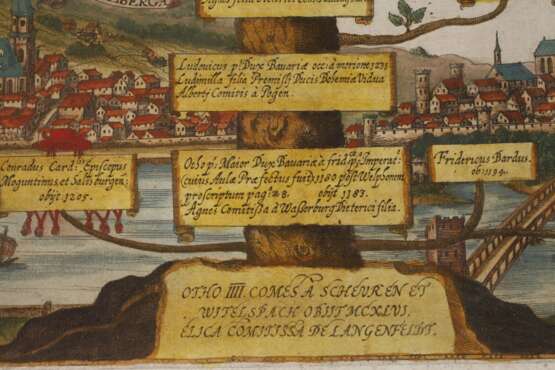 BERGA
Ludovicus pᵒ Dux Bavariæ occ: à
Ludimilla filia Premisli Ducis Bohemiæ Vidua
Alberti Comitis à Pogen.
Conradus Card: Episcopus
Moguntinus, et Salisburgen;
obijt 1205.
Otho pᵒ Maior Dux Bavariæ à frid: pᵒ Imperat:
(cuius Aulæ Præfectus fuit) 1180 post Welphonem
proscriptum pag: 28. obijt 1183.
Agnes Comitissa à Wasserburg Dieterici filia.
Fridericus Bardus.
ob: 1194.
OTHO IIII. COMES A SCHEUREN ET
WITELSPACH OBIIT MCXLVI.
ELICA COMITISSA DE LANGENFELDT.